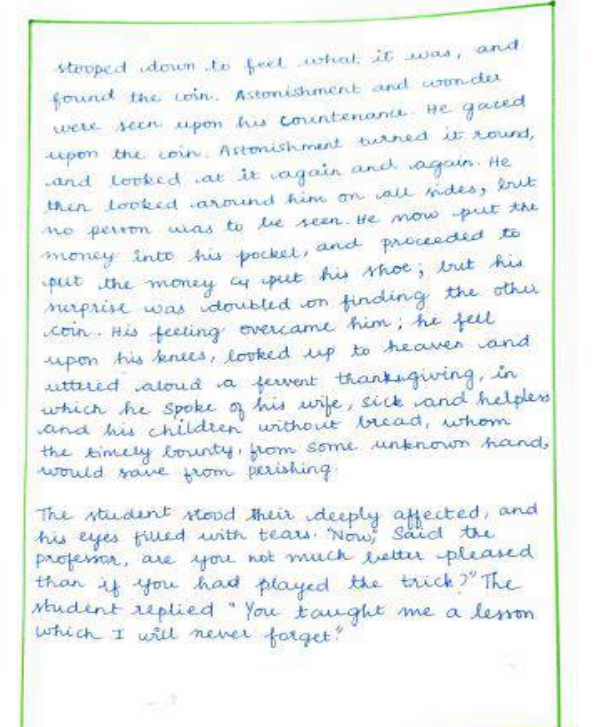 stooped down to feel what it was, and
found the coin. Astonishment and wonder
were seen upon his Countenance. He gazed
upon the coin. Astonishment turned it round,
and looked at it again and again. He
then looked around him on all sides, but
no person was to be seen. He now put the
money into his pocket, and proceeded to
put the money cy put his shoe; but his
surprise was doubled on finding the other
coin. His feeling overcame him; he fell
upon his knees, looked up to heaven and
uttered aloud a fervent thanksgiving, in
which he spoke of his wife, sick and helpless
and his children without bread, whom
the timely bounty, from some unknown hand,
would save from perishing.
The student stood their deeply affected, and
his eyes filled with tears. "Now," Said the
professor, are you not much better pleased
than if you had played the trick?" The
student replied "You taught me a lesson
which I will never forget."